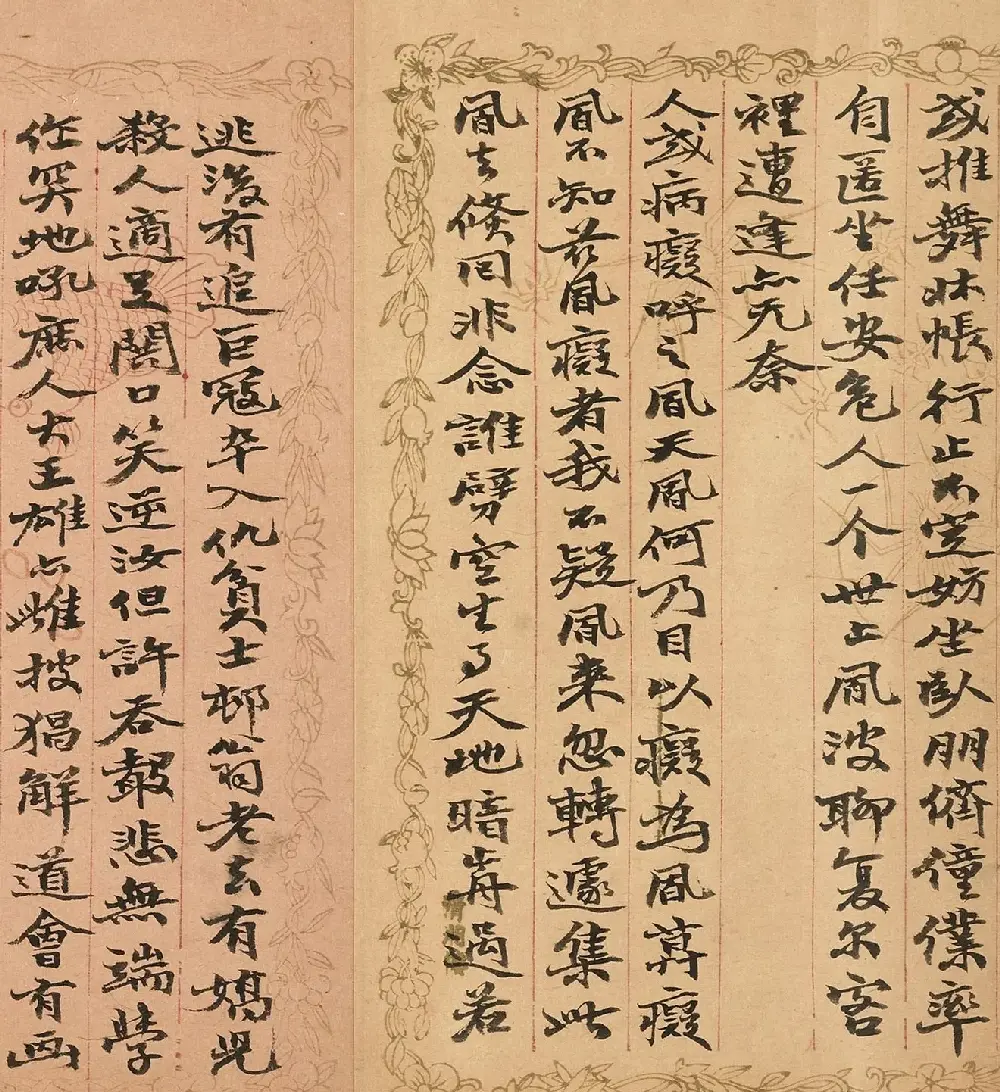 或推舞牀帳行止不寔妨坐臥朋儕僮僕率
自匿坐任安危人一个世上風波聊复尔客
裡遭逢亦无奈
人或病癡呼之風天風何乃目以癡為風莽癡
風不知花風癡者我不疑風来忽轉遽集此
風去倏回非念誰劈空生了天地暗莽過若
逃没有追巨寇卒入仇貧士邨翁老去有嬌児
殺人適足闊口笑逆汝但許吞聲悲無端學
作哭地吼庶人大王雄亦雌披猖解道會有画